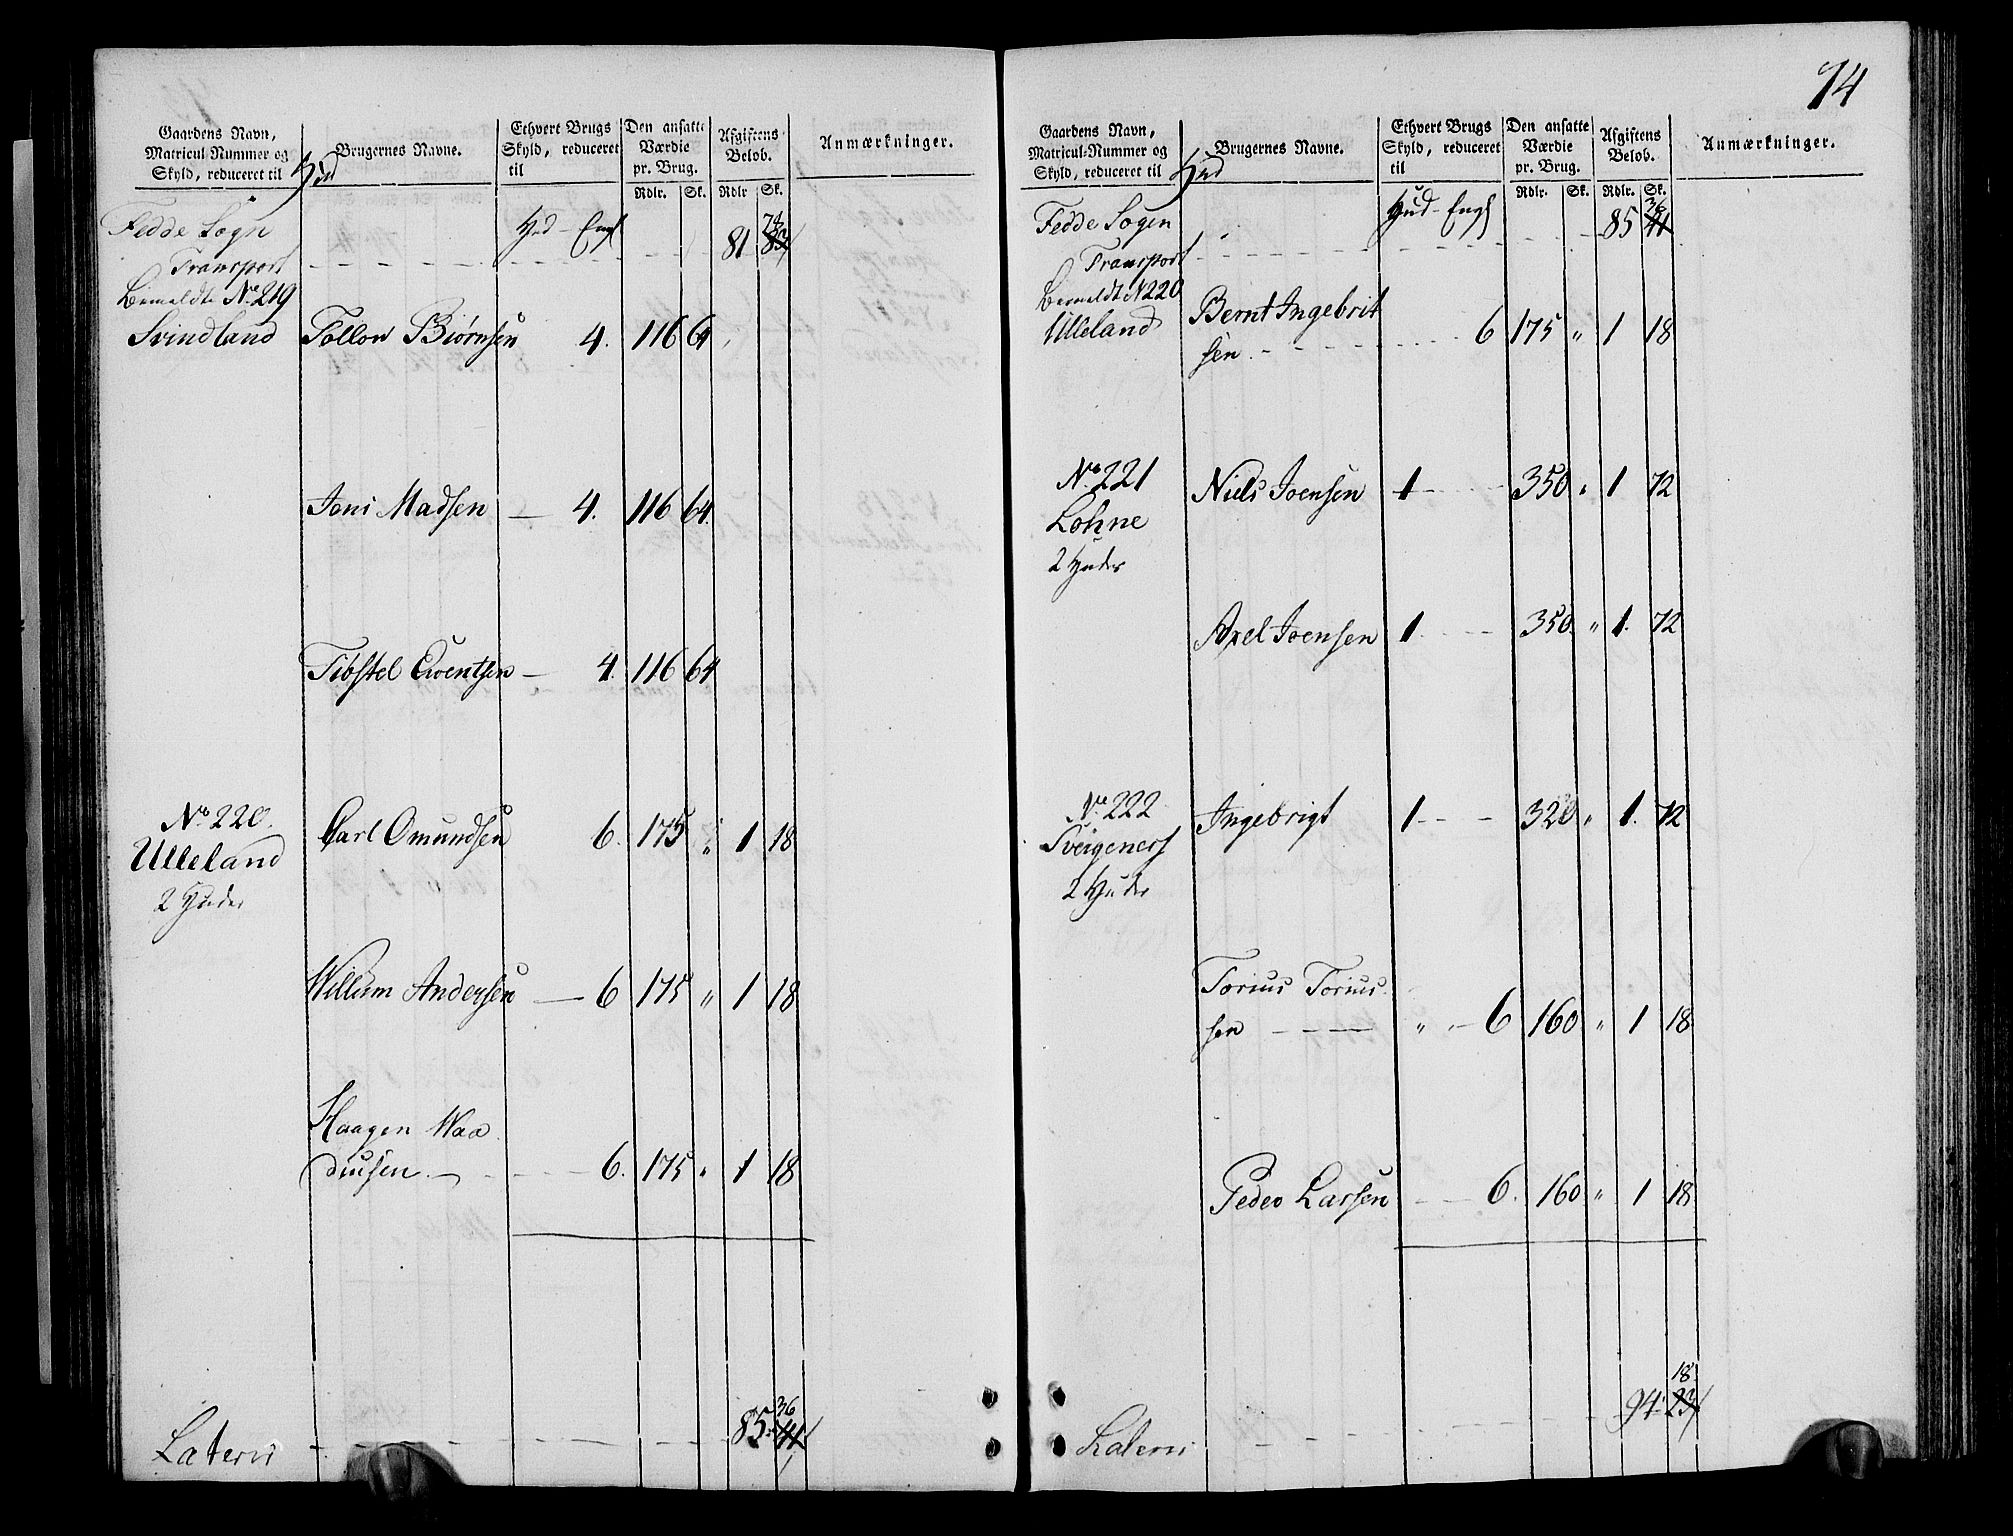 Gaardens Navn, Matricul-Nummer og Skyld, reduceret til Hud
Brugernes Navne.
Ethvert Brugs Skyld, reduceret til
Den ansatte Værdie pr. Brug.
Afgiftens Beløb.
Anmærkninger.
Rdlr. Sk. Rdlr Sk.
Fedde Sogn Hud - Eng
Transport 81 78 83
bemeldte No. 219
Svindland Tollow Biørnsen 4. 116 64
Jens Madsen 4. 116 64
Tibstel Ewentsen 4. 116 64
No. 220 Carl Omundsen 6. 175 " 1 18
Ulleland
2 Huder
Willum Andersen 6 175 " 1 18
Haagen Waa
diusen 6. 175 " 1 18
Lateris 85 36 41
74
Gaardens Navn, Matricul-Nummer og Skyld, reduceret til Hud
Brugernes Navne.
Ethvert Brugs Skyld, reduceret til
Den ansatte Værdie pr. Brug.
Afgiftens Beløb.
Anmærkninger.
Rdlr. Sk. Rdlr. Sk.
Fedde Sogen Hud - Eng 85 36 41
Transport
bemeldte N 220
Ulleland Bernt Ingebrit
sen 6 175 " 1 18
No. 221 Niels Joensen 1 350 " 1 72
Lohne
2 Huder
Axel Joensen 1 350 " 1 72
No. 222 Ingebrigt 1 320 " 1 72
2 Huder
Torius Torius
sen " 6 160 " 1 18
Peder Larsen 6. 160 " 1 18
Lateris 94 18 23